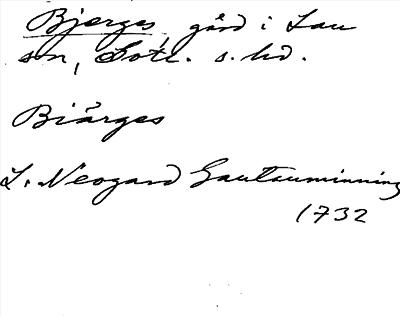 Bjerges, gård i Lau
sn, Gotl. s. hd.
Biärges
L. Neogard Gautauminning
1732